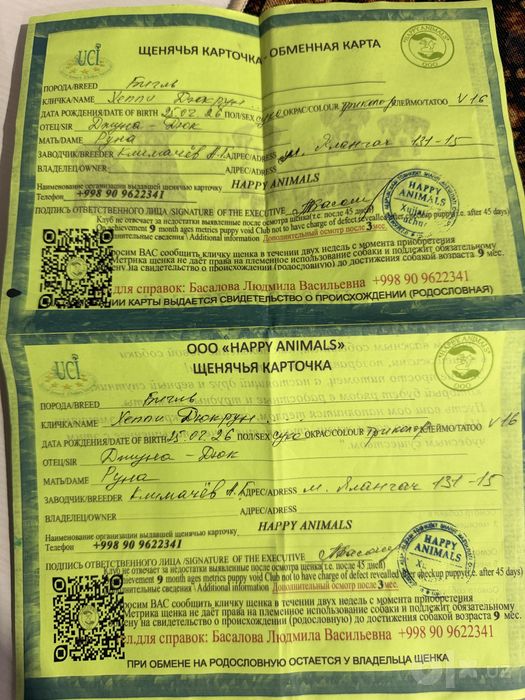 UCI
ЩЕНЯЧЬЯ КАРТОЧКА - ОБМЕННАЯ КАРТА
"HAPPY ANIMALS"
ООО
ПОРОДА/BREED Бигль
КЛИЧКА/NAME Хеппи Дюкрун
ДАТА РОЖДЕНИЯ/DATE OF BIRTH 25.02.26 ПОЛ/SEX сука ОКРАС/COLOUR триколор КЛЕЙМО/TATOO V16
ОТЕЦ/SIR Джуна - Дюк
МАТЬ/DAME Руна
ЗАВОДЧИК/BREEDER Климачёв А.Г. АДРЕС/ADRESS м. Ялангач 131-15
ВЛАДЕЛЕЦ/OWNER АДРЕС/ADRESS
Наименование организации выдавшей щенячью карточку HAPPY ANIMALS
Телефон +998 90 9622341
ПОДПИСЬ ОТВЕТСТВЕННОГО ЛИЦА /SIGNATURE OF THE EXECUTIVE
HAPPY ANIMALS
Клуб не отвечает за недостатки выявленные после осмотра щенка(т.е. после 45 дней)
achievement 9 month ages metrics puppy void Club not to have charge of defect revealed after checkup puppy(i.e. after 45 days)
Дополнительные сведения \ Additional information Дополнительный осмотр после 3 мес.
Просим ВАС сообщить кличку щенка в течении двух недель с момента приобретения
Метрика не даёт права на племенное использование собаки и подлежит обязательному
обмену на свидетельство о происхождении (родословную) до достижения собакой возраста 9 мес.
Тел.для справок: Басалова Людмила Васильевна +998 90 9622341
КАРТЫ ВЫДАЕТСЯ СВИДЕТЕЛЬСТВО О ПРОИСХОЖДЕНИИ (РОДОСЛОВНАЯ)
ООО «HAPPY ANIMALS»
ЩЕНЯЧЬЯ КАРТОЧКА
UCI
"HAPPY ANIMALS"
ООО
ПОРОДА/BREED Бигль
КЛИЧКА/NAME Хеппи Дюкрун
ДАТА РОЖДЕНИЯ/DATE OF BIRTH 25.02.26 ПОЛ/SEX сука ОКРАС/COLOUR триколор КЛЕЙМО/TATOO V16
ОТЕЦ/SIR Джуна - Дюк
МАТЬ/DAME Руна
ЗАВОДЧИК/BREEDER Климачёв А.Г. АДРЕС/ADRESS м. Ялангач 131-15
ВЛАДЕЛЕЦ/OWNER АДРЕС/ADRESS
Наименование организации выдавшей щенячью карточку HAPPY ANIMALS
Телефон +998 90 9622341
ПОДПИСЬ ОТВЕТСТВЕННОГО ЛИЦА /SIGNATURE OF THE EXECUTIVE
HAPPY ANIMALS
Клуб не отвечает за недостатки выявленные после осмотра щенка(т.е. после 45 дней)
achievement 9 month ages metrics puppy void Club not to have charge of defect revealed after checkup puppy(i.e. after 45 days)
Дополнительные сведения \ Additional information Дополнительный осмотр после 3 мес.
Просим ВАС сообщить кличку щенка в течении двух недель с момента приобретения
Метрика не даёт права на племенное использование собаки и подлежит обязательному
обмену на свидетельство о происхождении (родословную) до достижения собакой возраста 9 мес.
Тел.для справок: Басалова Людмила Васильевна +998 90 9622341
ПРИ ОБМЕНЕ НА РОДОСЛОВНУЮ ОСТАЕТСЯ У ВЛАДЕЛЬЦА ЩЕНКА